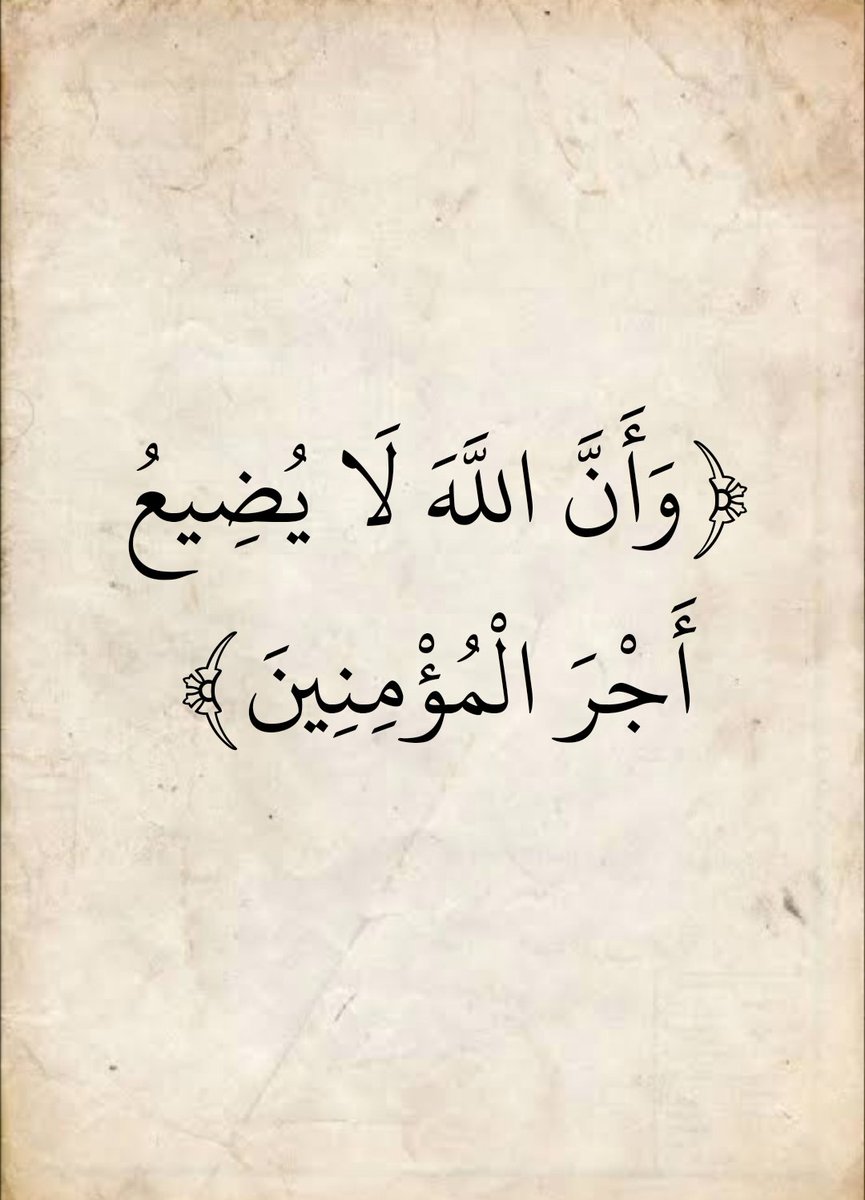 ﴿وَأَنَّ اللَّهَ لَا يُضِيعُ
أَجْرَ الْمُؤْمِنِينَ﴾